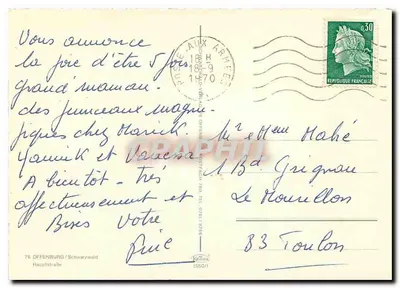 Vous annonce
la joie d'être 5 fois
grand'maman.
des jumeaux magni-
fiques chez Marick.
Yannick et Vanessa.
A bientôt - très
affectueusement et
Bises Votre
POSTE AUX ARMEES
18 H
1970
0,30
REPUBLIQUE FRANÇAISE
Mr et Mme Mahé
1 Bd Grignan
Le Mourillon
83 Toulon
76 OFFENBURG / Schwarzwald
Hauptstraße